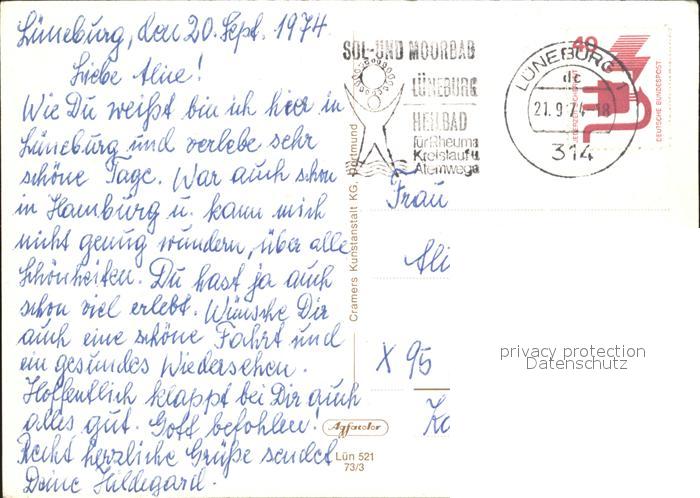 Lüneburg, den 20. Sept. 1974.
Liebe Aline!
Wie Du weißt bin ich hier in
Lüneburg und verlebe sehr
schöne Tage. War auch schon
in Hamburg u. kann mich
nicht genug wundern, über alle
Schönheiten. Du hast ja auch
schon viel erlebt. Wünsche Dir
auch eine schöne Fahrt und
ein gesundes Wiedersehen.
Hoffentlich klappt bei Dir auch
alles gut. Gott befohlen!
Recht herzliche Grüße sendet
Deine Hildegard.
SOL- UND MOORBAD
LÜNEBURG
HEILBAD
für Rheuma
Kreislauf u.
Atemwege
LÜNEBURG
dc
21.9.74-18
314
40
JEDERZEIT SICHERHEIT
DEUTSCHE BUNDESPOST
Cramers Kunstanstalt KG, Dortmund
Frau
Ali
X 95
Ka
privacy protection
Datenschutz
Agfacolor
Lün 521
73/3